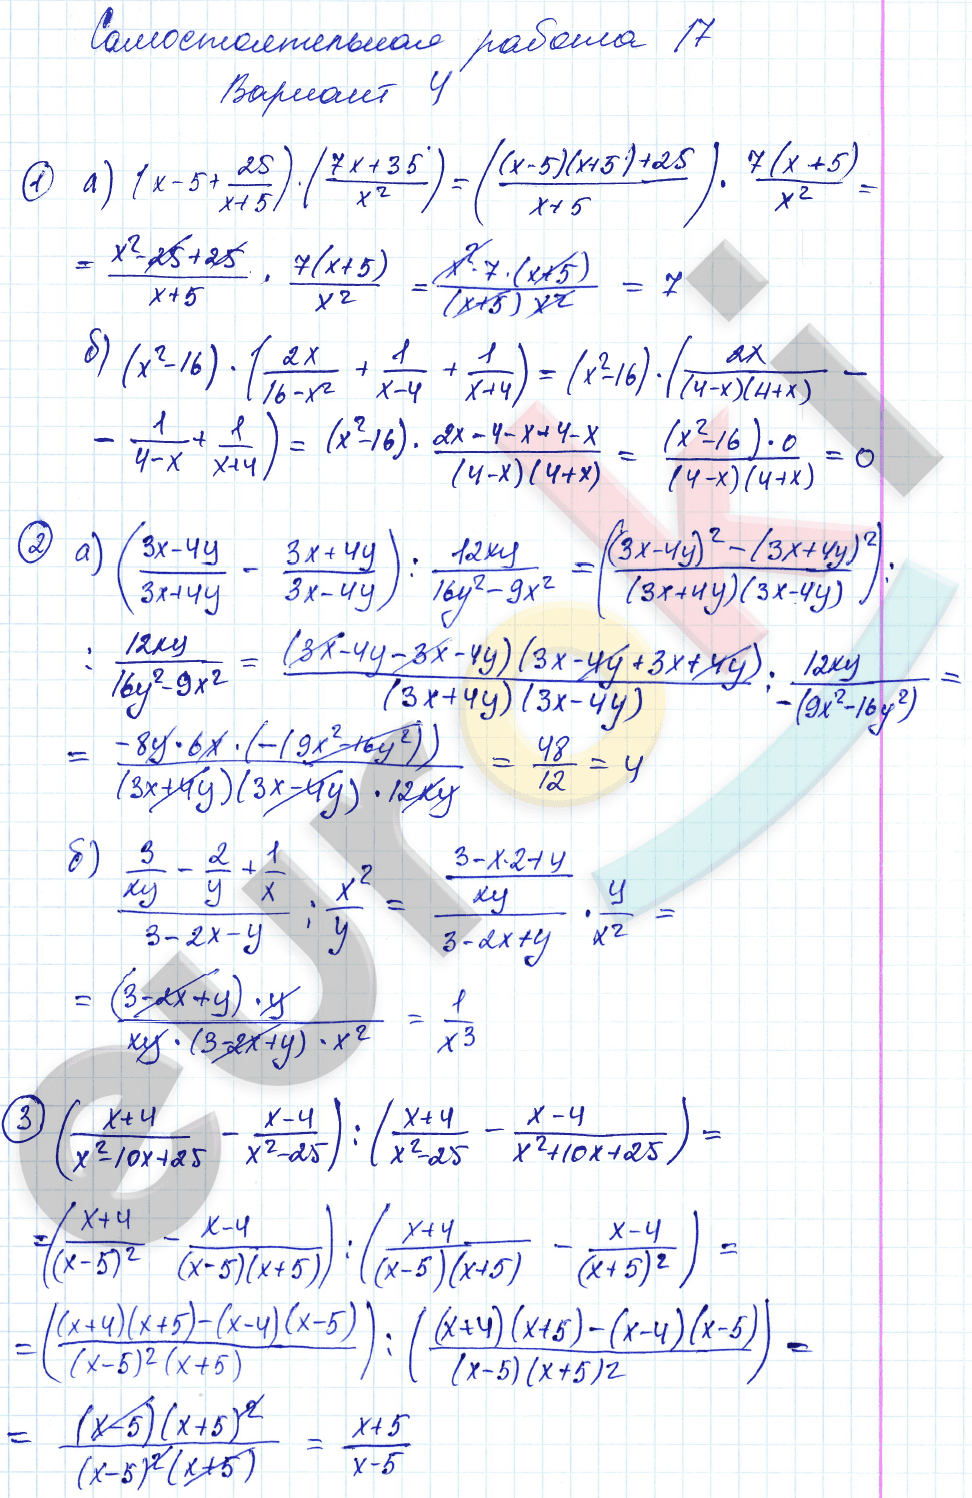 Самостоятельная работа 17
Вариант 4
① а) (x-5+25/(x+5))·((7x+35)/x²)=(((x-5)(x+5)+25)/(x+5))·7(x+5)/x²=
=(x²-25+25)/(x+5)·7(x+5)/x²=x²·7·(x+5)/((x+5)x²)=7
б) (x²-16)·(2x/(16-x²)+1/(x-4)+1/(x+4))=(x²-16)·(2x/((4-x)(4+x))-
-1/(4-x)+1/(x+4))=(x²-16)·(2x-4-x+4-x)/((4-x)(4+x))=(x²-16)·0/((4-x)(4+x))=0
② а) ((3x-4y)/(3x+4y)-(3x+4y)/(3x-4y)):12xy/(16y²-9x²)=(((3x-4y)²-(3x+4y)²)/((3x+4y)(3x-4y))):
:12xy/(16y²-9x²)=(3x-4y-3x-4y)(3x-4y+3x+4y)/((3x+4y)(3x-4y)):12xy/(-(9x²-16y²))=
=-8y·6x·(-(9x²-16y²))/((3x+4y)(3x-4y)·12xy)=48/12=4
б) (3/xy-2/y+1/x)/(3-2x-y):x²/y=((3-x·2+y)/xy)/(3-2x+y)·y/x²=
=(3-2x+y)·y/(xy·(3-2x+y)·x²)=1/x³
③ ((x+4)/(x²-10x+25)-(x-4)/(x²-25)):((x+4)/(x²-25)-(x-4)/(x²+10x+25))=
=((x+4)/(x-5)²-(x-4)/((x-5)(x+5))):((x+4)/((x-5)(x+5))-(x-4)/(x+5)²)=
=(((x+4)(x+5)-(x-4)(x-5))/((x-5)²(x+5))):(((x+4)(x+5)-(x-4)(x-5))/((x-5)(x+5)2))=
=(x-5)(x+5)²/((x-5)²(x+5))=(x+5)/(x-5)
euroki